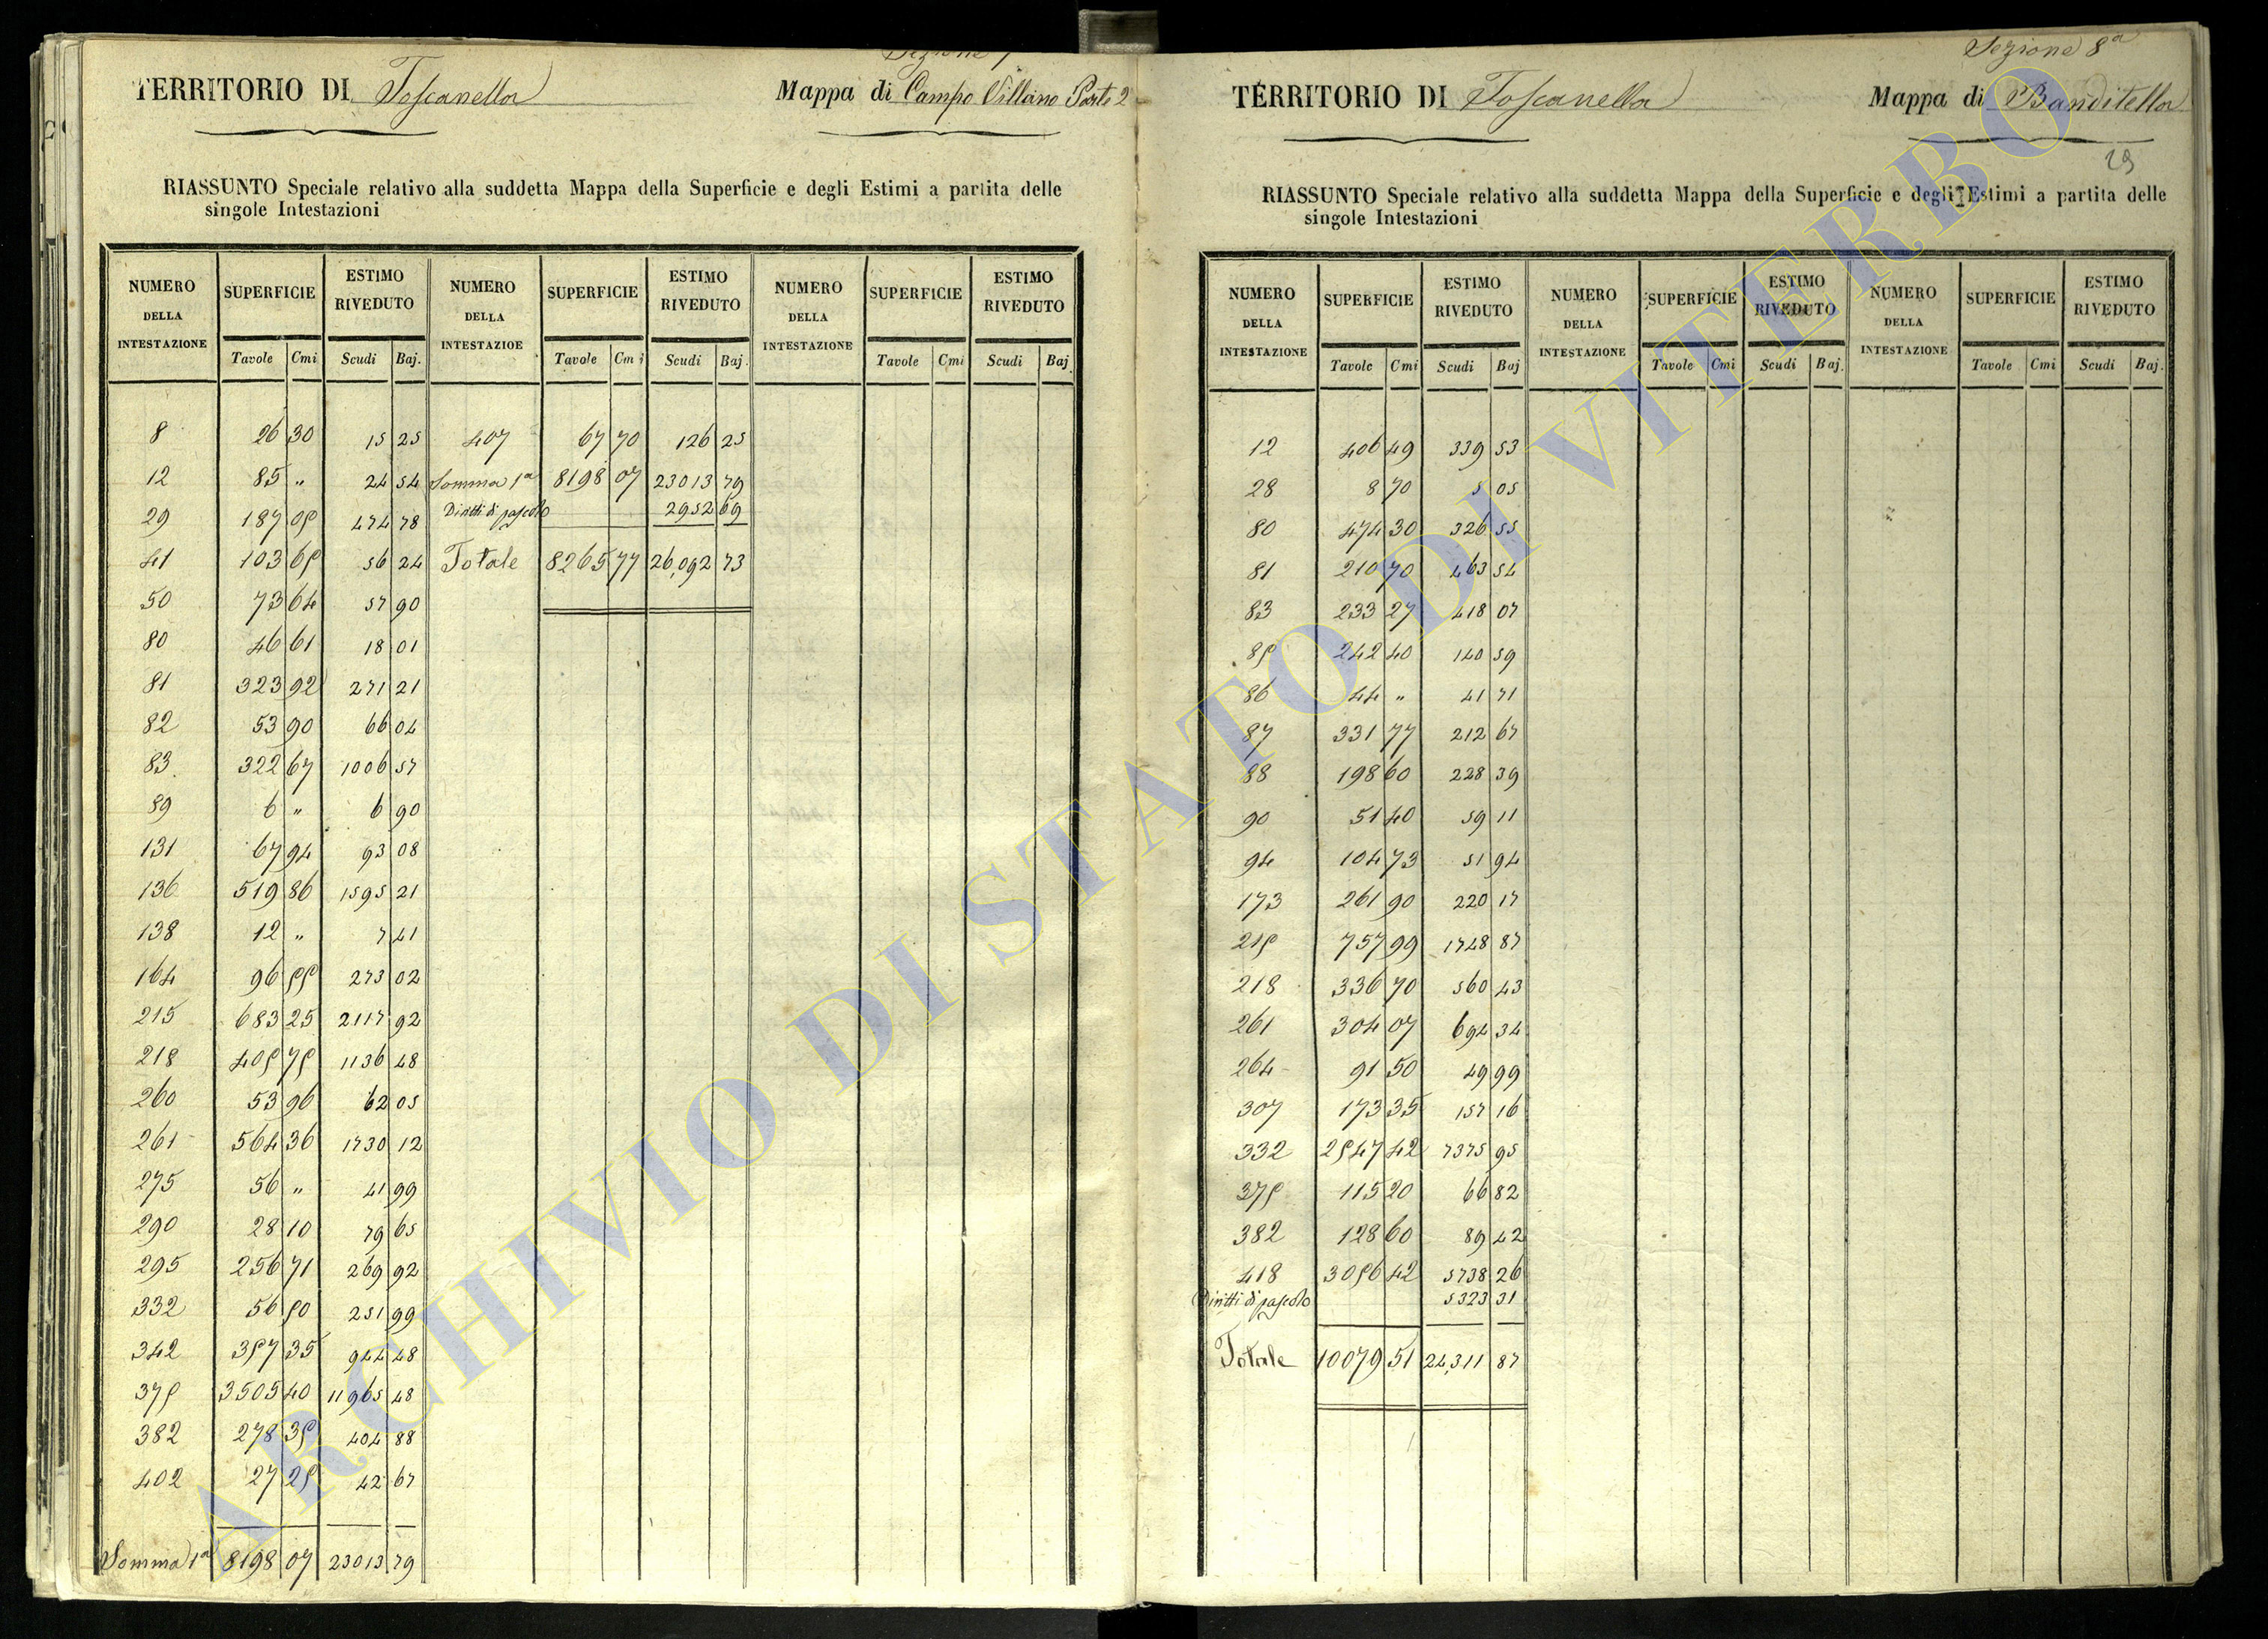 Sezione 7
TERRITORIO DI Toscanella Mappa di Campo Villano Parte 2
RIASSUNTO Speciale relativo alla suddetta Mappa della Superficie e degli Estimi a partita delle
singole Intestazioni
NUMERO DELLA INTESTAZIONE SUPERFICIE ESTIMO RIVEDUTO NUMERO DELLA INTESTAZIOE SUPERFICIE ESTIMO RIVEDUTO NUMERO DELLA INTESTAZIONE SUPERFICIE ESTIMO RIVEDUTO
Tavole Cmi Scudi Baj. Tavole Cmi Scudi Baj. Tavole Cmi Scudi Baj.
8 26 30 15 25 407 67 70 126 25
12 85 " 24 54 Somma 1a 8198 07 23013 79
Diritti di pascolo 2952 69
29 187 05 474 78
41 103 65 56 24 Totale 8265 77 26,092 73
50 73 64 57 90
80 46 61 18 01
81 323 92 271 21
82 53 90 66 04
83 322 67 1006 57
89 6 " 6 90
131 67 94 93 08
136 519 86 1595 21
138 12 " 7 41
164 96 55 273 02
215 683 25 2117 92
218 405 75 1136 48
260 53 96 62 05
261 564 36 1730 12
275 56 " 41 99
290 28 10 79 65
295 256 71 269 92
332 56 50 251 99
342 357 35 944 48
375 3505 40 11965 48
382 278 35 404 88
402 27 25 42 67
Somma 1a 8198 07 23013 79
Sezione 8a
TERRITORIO DI Toscanella Mappa di Banditella
29
RIASSUNTO Speciale relativo alla suddetta Mappa della Superficie e degli Estimi a partita delle
singole Intestazioni
NUMERO DELLA INTESTAZIONE SUPERFICIE ESTIMO RIVEDUTO NUMERO DELLA INTESTAZIONE SUPERFICIE ESTIMO RIVEDUTO NUMERO DELLA INTESTAZIONE SUPERFICIE ESTIMO RIVEDUTO
Tavole Cmi Scudi Baj Tavole Cmi Scudi Baj. Tavole Cmi Scudi Baj.
12 406 49 339 53
28 8 70 5 05
80 474 30 326 55
81 210 70 463 54
83 233 27 418 07
85 242 40 140 59
86 44 " 41 71
87 331 77 212 67
88 198 60 228 39
90 51 40 59 11
94 104 73 51 94
173 261 90 220 17
215 757 99 1748 87
218 336 70 560 43
261 304 07 694 34
264 91 50 49 99
307 173 35 157 16
332 2547 42 7375 95
375 115 20 66 82
382 128 60 89 42
418 3056 42 5738 26
Diritti di pascolo 5323 31
Totale 10079 51 24,311 87
ARCHIVIO DI STATO DI VITERBO